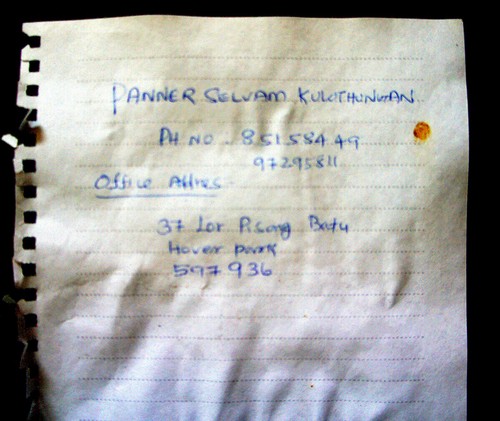 PANNER SELVAM KULOTHUNGAN
PH NO. 8515 84 49
97295811
Office Addres
37 Lor Pisang Batu
Hover park
597 936